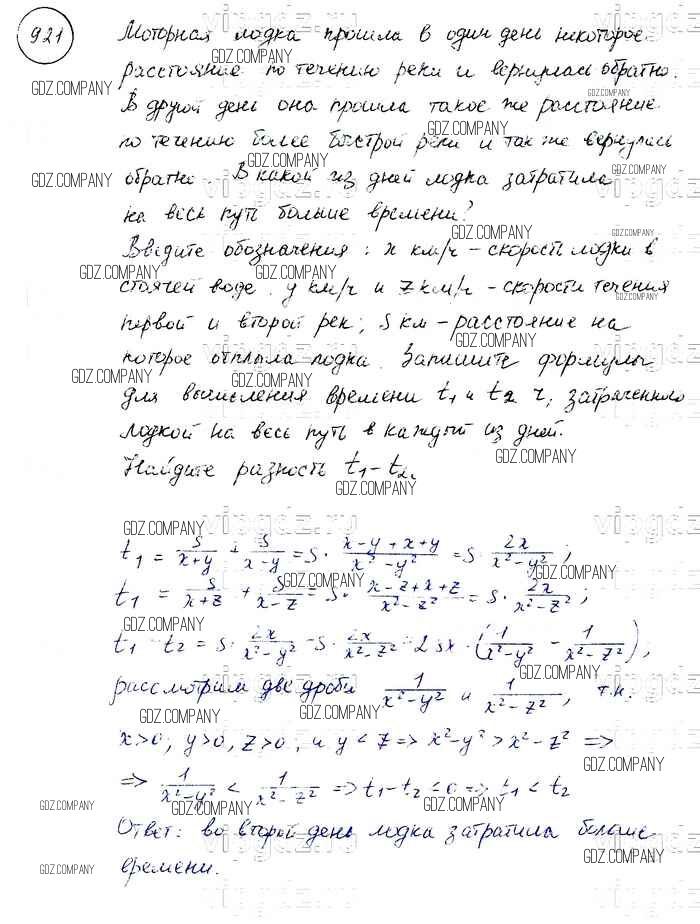 921
Моторная лодка прошла в один день некоторое
расстояние по течению реки и вернулась обратно.
В другой день она прошла такое же расстояние
по течению более быстрой реки и так же вернулась
обратно. В какой из дней лодка затратила
на весь путь больше времени?
Введите обозначения: x км/ч - скорость лодки в
стоячей воде, y км/ч и z км/ч - скорости течения
первой и второй рек; S км - расстояние на
которое отплыла лодка. Запишите формулы
для вычисления времени t₁ и t₂ ч, затраченного
лодкой на весь путь в каждый из дней.
Найдите разность t₁ - t₂.
t₁ = S/(x+y) + S/(x-y) = S · (x-y+x+y)/(x²-y²) = S · 2x/(x²-y²);
t₁ = S/(x+z) + S/(x-z) = S · (x-z+x+z)/(x²-z²) = S · 2x/(x²-z²);
t₁ - t₂ = S · 2x/(x²-y²) - S · 2x/(x²-z²) = 2Sx · (1/(x²-y²) - 1/(x²-z²)),
рассмотрим две дроби 1/(x²-y²) и 1/(x²-z²), т.к.
x>0, y>0, z>0, и y < z => x²-y² > x²-z² =>
=> 1/(x²-y²) < 1/(x²-z²) => t₁-t₂ < 0 => t₁ < t₂
Ответ: во второй день лодка затратила больше
времени.
GDZ.COMPANY
vipgdz.ru